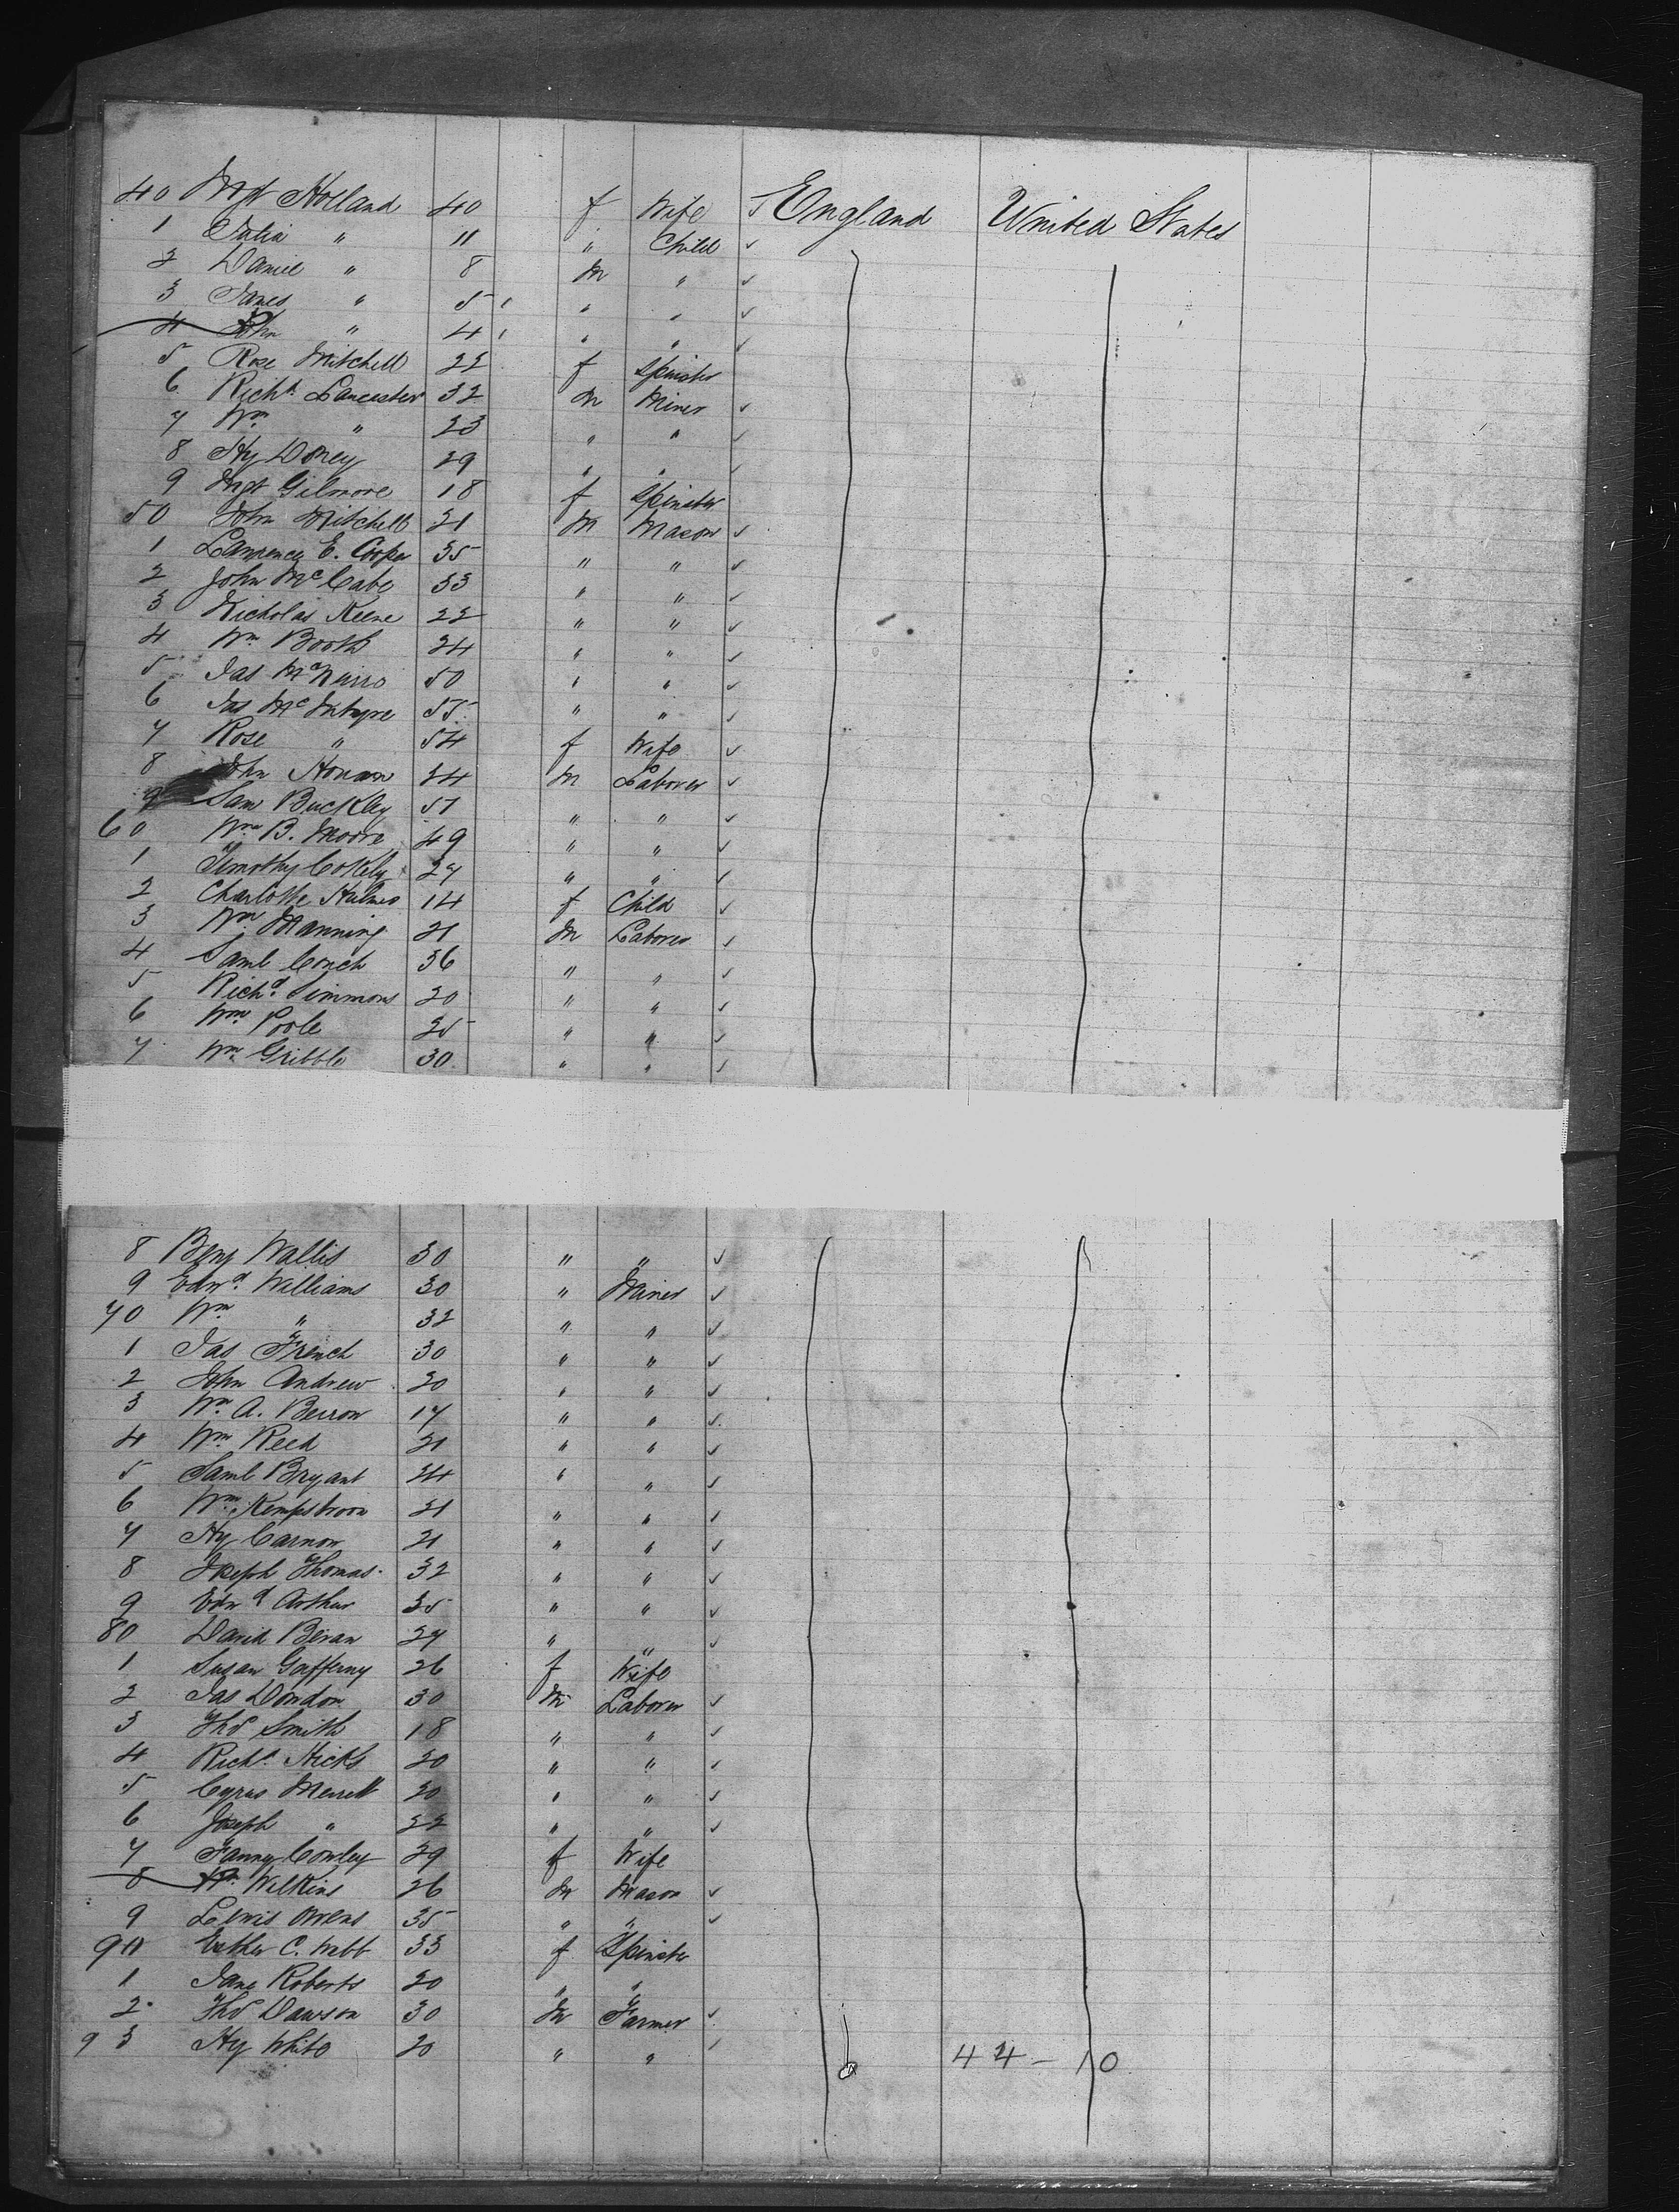 40 Mgt Holland 40 f Wife England United States
1 Julia " 11 " Child ✓
2 Daniel " 8 M " ✓
3 James " 5 " " ✓
4 John " 4 " " ✓
5 Rose Mitchell 22 f Spinster
6 Richd. Lancaster 32 M Miner ✓
7 Wm " 23 " " ✓
8 Hy Doney 29 " " ✓
9 Mgt Gilmore 18 f Spinster
50 John Mitchell 21 M Mason ✓
1 Lawrence E. Cooper 35 " " ✓
2 John McCabe 33 " " ✓
3 Nicholas Keene 22 " " ✓
4 Wm Booth 24 " " ✓
5 Jas 50 " " ✓
6 Jas McIntyre 55 " " ✓
7 Rose " 54 f Wife ✓
8 John 24 M Laborer ✓
9 Sam Buckley 51 " " ✓
60 Wm B. Moore 49 " " ✓
1 Timothy Cokely 27 " " ✓
2 Charlotte Hulmes 14 f Child ✓
3 Wm Manning 21 M Laborer ✓
4 Saml Couch 36 " " ✓
5 Richd. Simmons 20 " " ✓
6 Wm Poole 25 " " ✓
7 Wm Gribble 30 " " ✓
8 Benj Wallis 30 " " ✓
9 Edwd. Williams 30 " Miner ✓
70 Wm " 32 " " ✓
1 Jas French 30 " " ✓
2 John Andrew 20 " " ✓
3 Wm A. 17 " " ✓
4 Wm Reed 21 " " ✓
5 Saml Bryant 24 " " ✓
6 Wm 21 " " ✓
7 Hy Carnon 21 " " ✓
8 Joseph Thomas 32 " " ✓
9 Edwd Arthur 35 " " ✓
80 David Bevan 27 " " ✓
1 Susan Gafferny 26 f Wife
2 Jas Dondon 30 M Laborer ✓
3 Thos Smith 18 " " ✓
4 Richd. Hicks 20 " " ✓
5 Cyrus Merrett 20 " " ✓
6 Joseph " 22 " " ✓
7 Fanny Conley 29 f Wife
8 Wm Wilkins 26 M Mason ✓
9 Lewis Owens 35 " " ✓
90 Esther C. Webb 33 f Spinster
1 Jane Roberts 20 " "
2 Thos Dawson 30 M Farmer ✓
93 Hy White 20 " " ✓ 44 - 10